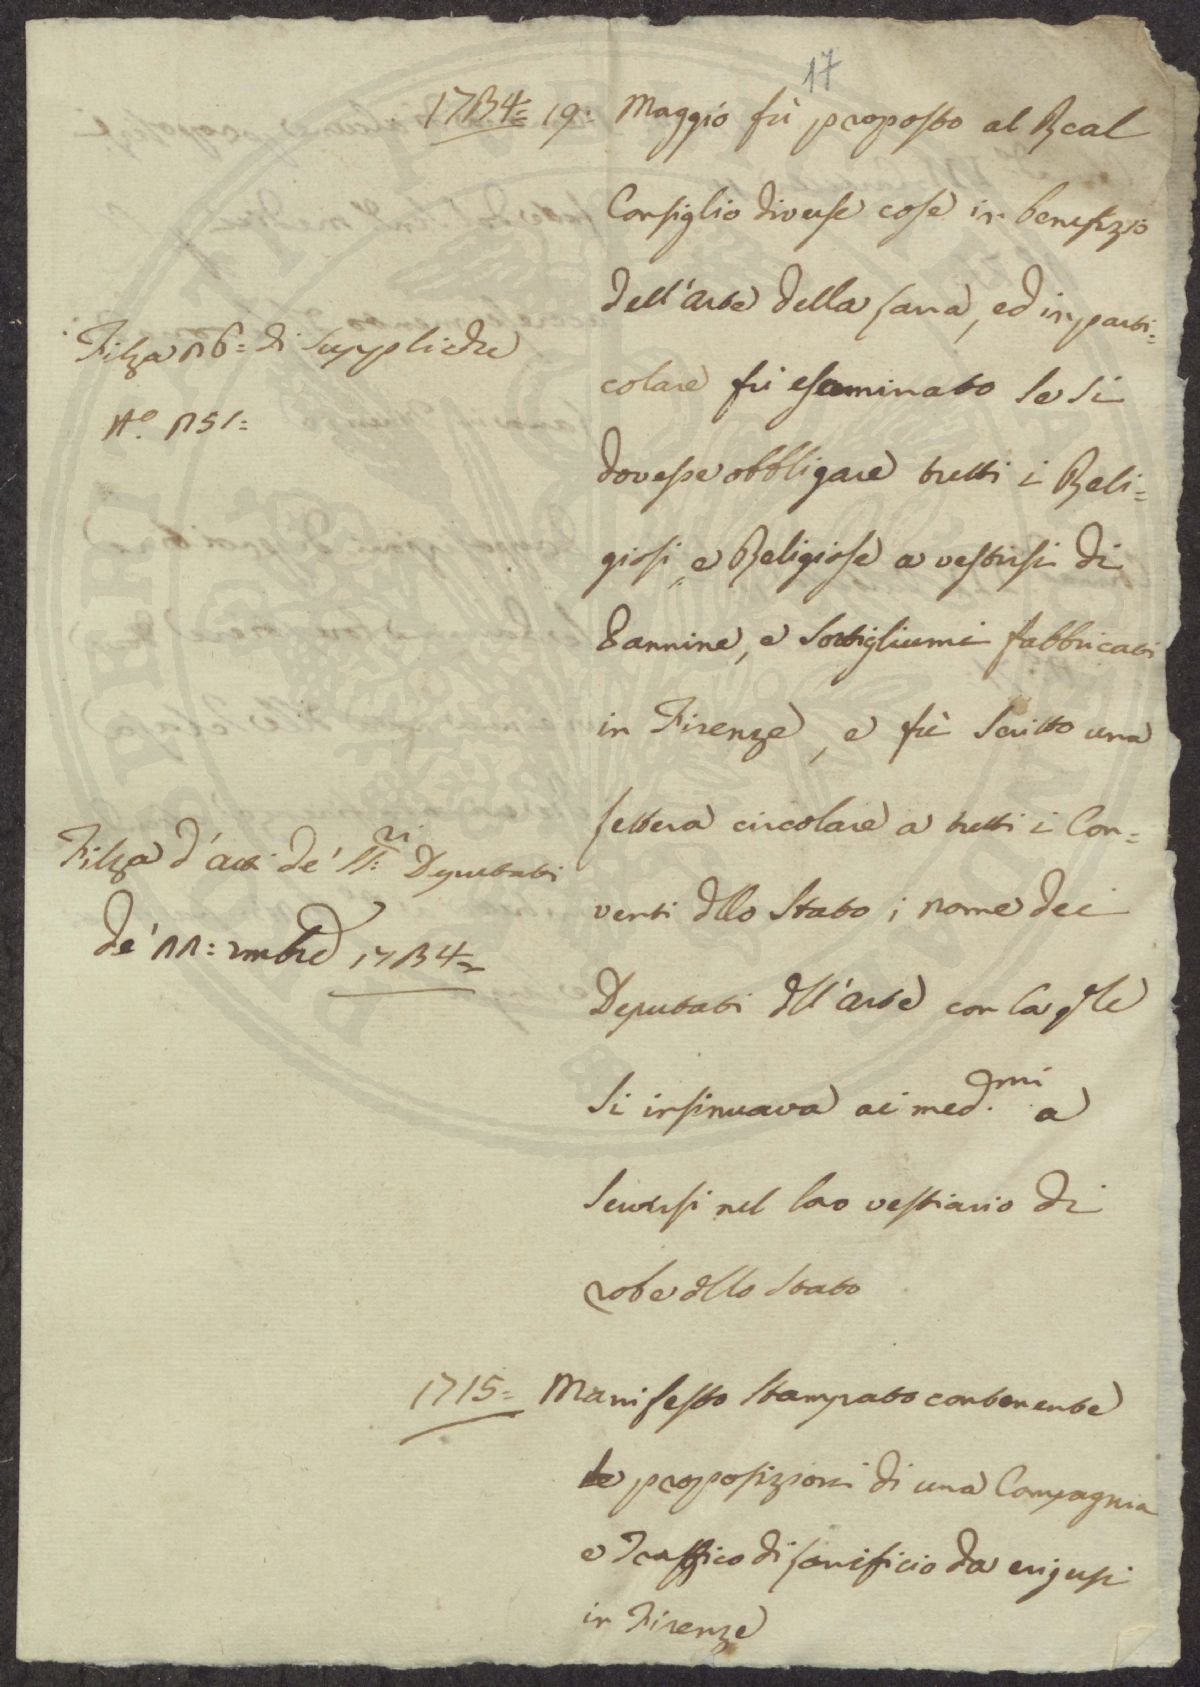 17
1734= 19: Maggio fù proposto al Real
Consiglio diverse cose in benefizio
dell'Arte della Lana, ed in parti=
colare fù esaminato se si
dovesse obbligare tutti i Reli=
giosi, e Religiose a vestirsi di
Pannine, e Sottigliumi fabbricati
in Firenze, e fù scritto una
Lettera circolare a tutti i Con=
venti dllo Stato i nome dei
Deputati dll'Arte con la qle
si insinuava ai med.mi a
servirsi nel loro vestiario di
robe dllo Stato
Filza 16= di Suppliche
N.o 151=
Filza d'atti de' SS:ri Deputati
de' 11: 9mbre 1734=
1715= Manifesto Stampato contenente
le proposizioni di una Compagnia
e Traffico di Lanificio da erigersi
in Firenze